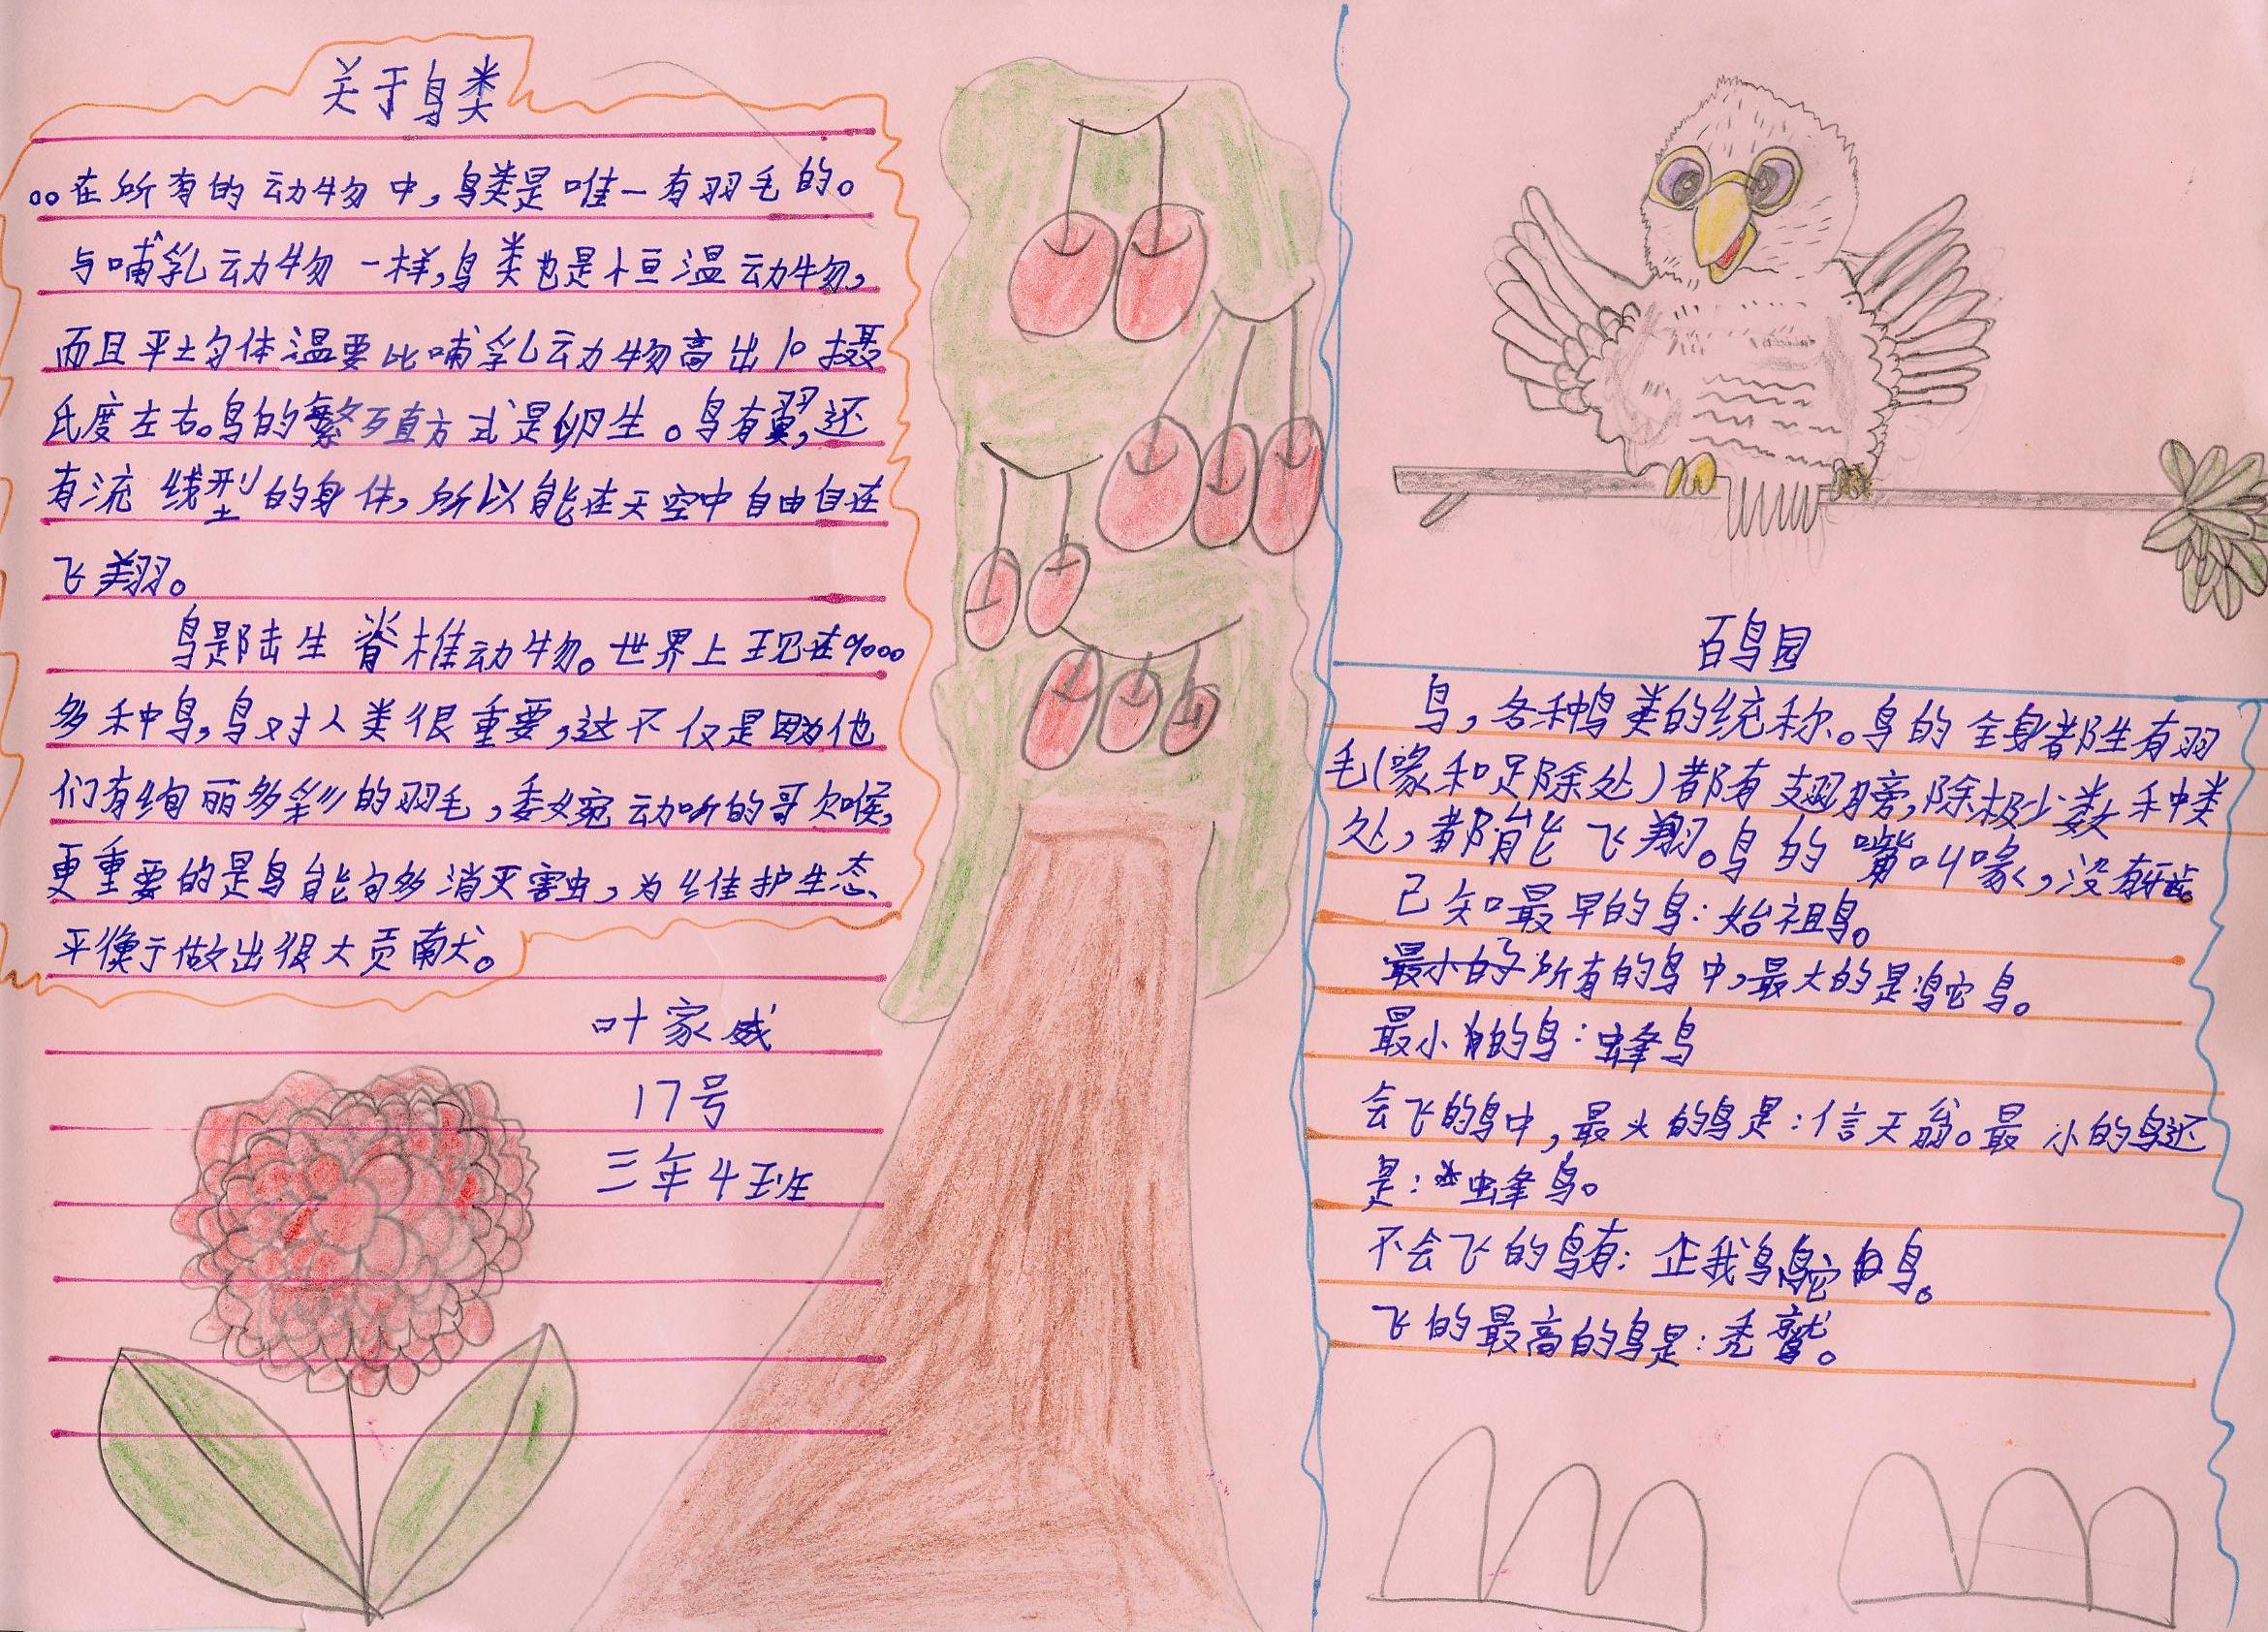 关于鸟类
在所有的动物中,鸟类是唯一有羽毛的。
与哺乳动物一样,鸟类也是恒温动物,
而且平均体温要比哺乳动物高出10摄
氏度左右。鸟的繁殖方式是卵生。鸟有翼,还
有流线型的身体,所以能在天空中自由自在
飞翔。
鸟是陆生脊椎动物。世界上现在9000
多种鸟,鸟对人类很重要,这不仅是因为他
们有绚丽多彩的羽毛,委婉动听的歌喉,
更重要的是鸟能够多消灭害虫,为维护生态
平衡于做出很大贡献。
叶家威
17号
三年4班
百鸟园
鸟,各种鸟类的统称。鸟的全身都生有羽
毛(喙和足除处)都有翅膀,除极少数种类
处,都能飞翔。鸟的嘴叫喙,没有牙齿。
己知最早的鸟:始祖鸟。
最小的 所有的鸟中,最大的是鸵鸟。
最小的鸟:蜂鸟
会飞的鸟中,最大的鸟是:信天翁。最小的鸟还
是:蜂鸟。
不会飞的鸟有:企鹅 鸵鸟。
飞的最高的鸟是:秃鹫。